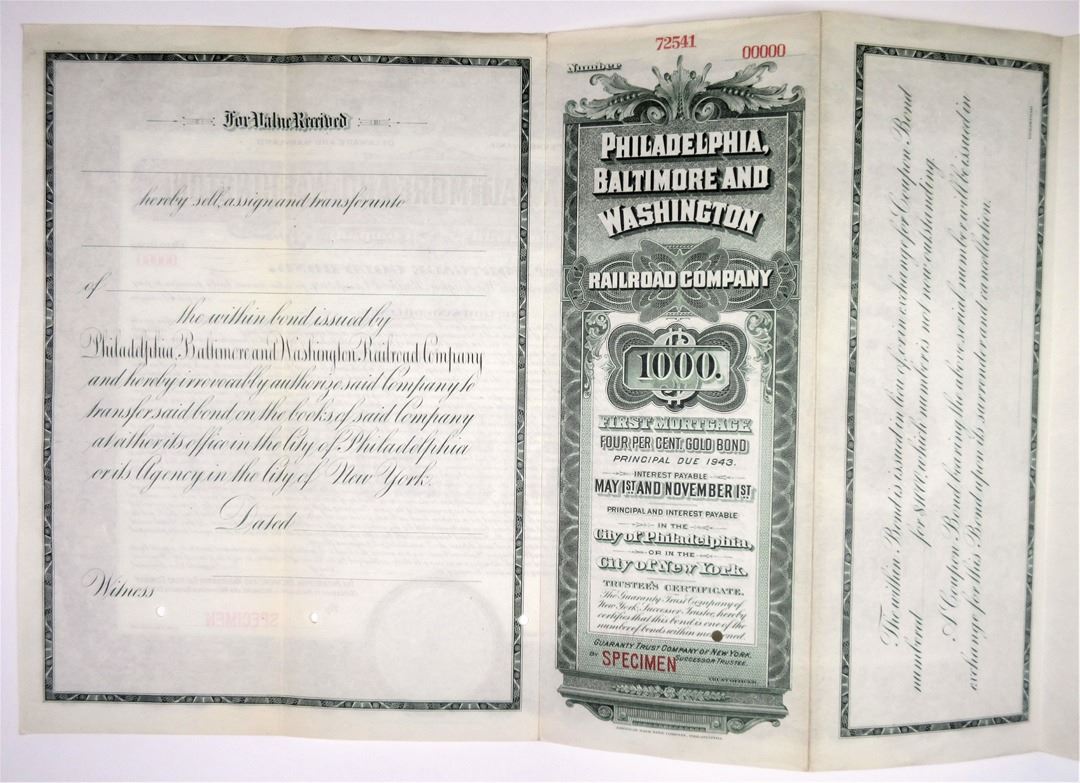 For Value Received
hereby sell, assign and transfer unto
of
the within bond issued by
Philadelphia, Baltimore and Washington Railroad Company
and hereby irrevocably authorize said Company to
transfer said bond on the books of said Company
at either its office in the City of Philadelphia
or its Agency in the City of New York.
Dated
Witness
SPECIMEN
72541
Number 00000
PHILADELPHIA,
BALTIMORE AND
WASHINGTON
RAILROAD COMPANY
1000.
FIRST MORTGAGE
FOUR PER CENT. GOLD BOND
PRINCIPAL DUE 1943.
INTEREST PAYABLE
MAY 1ST AND NOVEMBER 1ST
PRINCIPAL AND INTEREST PAYABLE
IN THE
City of Philadelphia,
OR IN THE
City of New York.
TRUSTEE'S CERTIFICATE.
The Guaranty Trust Company of
New York, Successor Trustee, hereby
certifies that this bond is one of the
number of bonds within
GUARANTY TRUST COMPANY OF NEW YORK.
SUCCESSOR TRUSTEE.
BY SPECIMEN
TRUST OFFICER.
AMERICAN BANK NOTE COMPANY, PHILADELPHIA.
The within Bond is issued in lieu of or in exchange for Coupon Bond
numbered for $1000, which number is not now outstanding.
A Coupon Bond bearing the above serial number will be issued in
exchange for this Bond upon its surrender and cancellation.